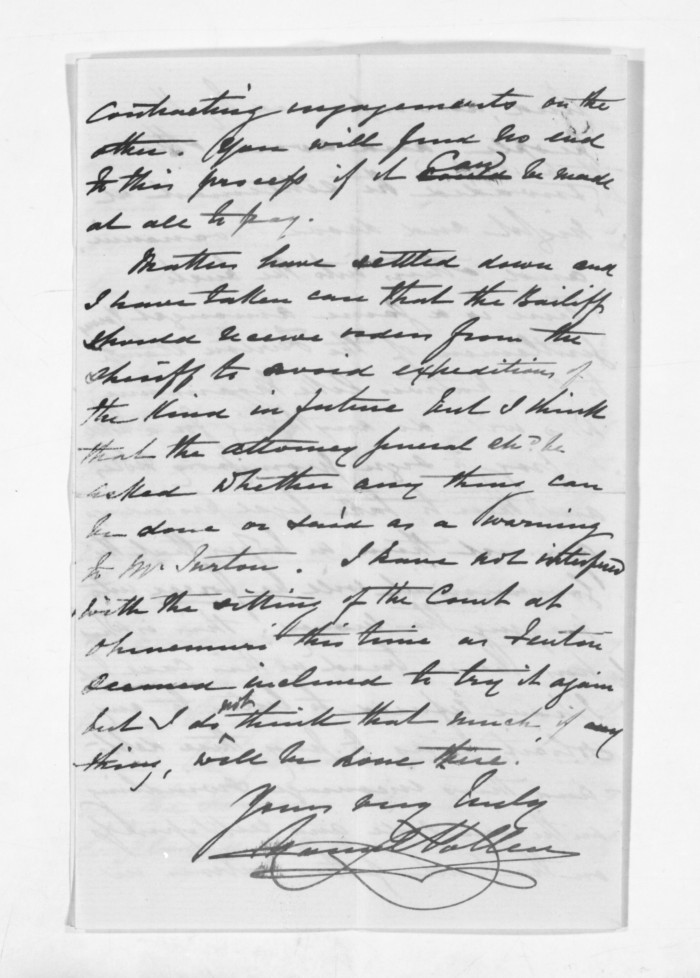 contracting engagements on the
other. You will find no end
to this process if it can could be made
at all to pay.
Matters have settled down and
I have taken care that the Bailiff
should receive orders from the
Sheriff to avoid expeditions of
the kind in future but I think
that the attorney general shd be
asked whether any thing can
be done or said as a warning
to Mr Turton. I have not interfered
with the sitting of the Court at
Ohinemuri this time as Fenton
seemed inclined to try it again
but I do not think that much if any
thing, will be done there.
Yours very truly
Daniel Pollen